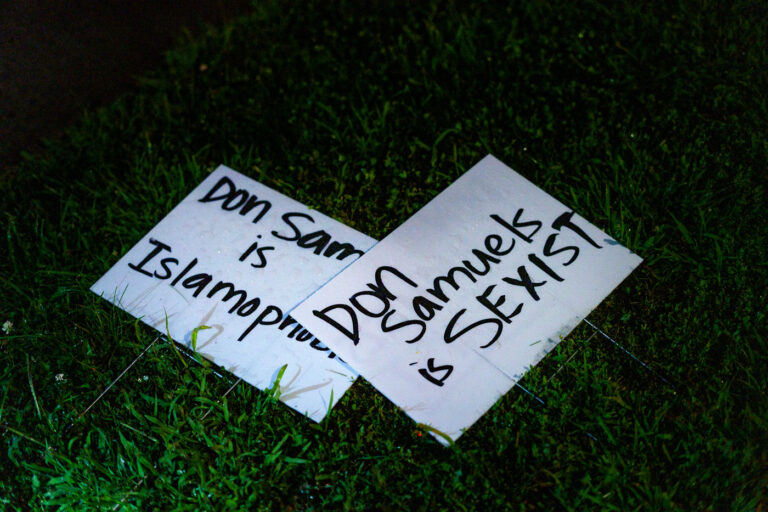 Don Sam
is
Islamopho
Don
Samuels
is SEXIST